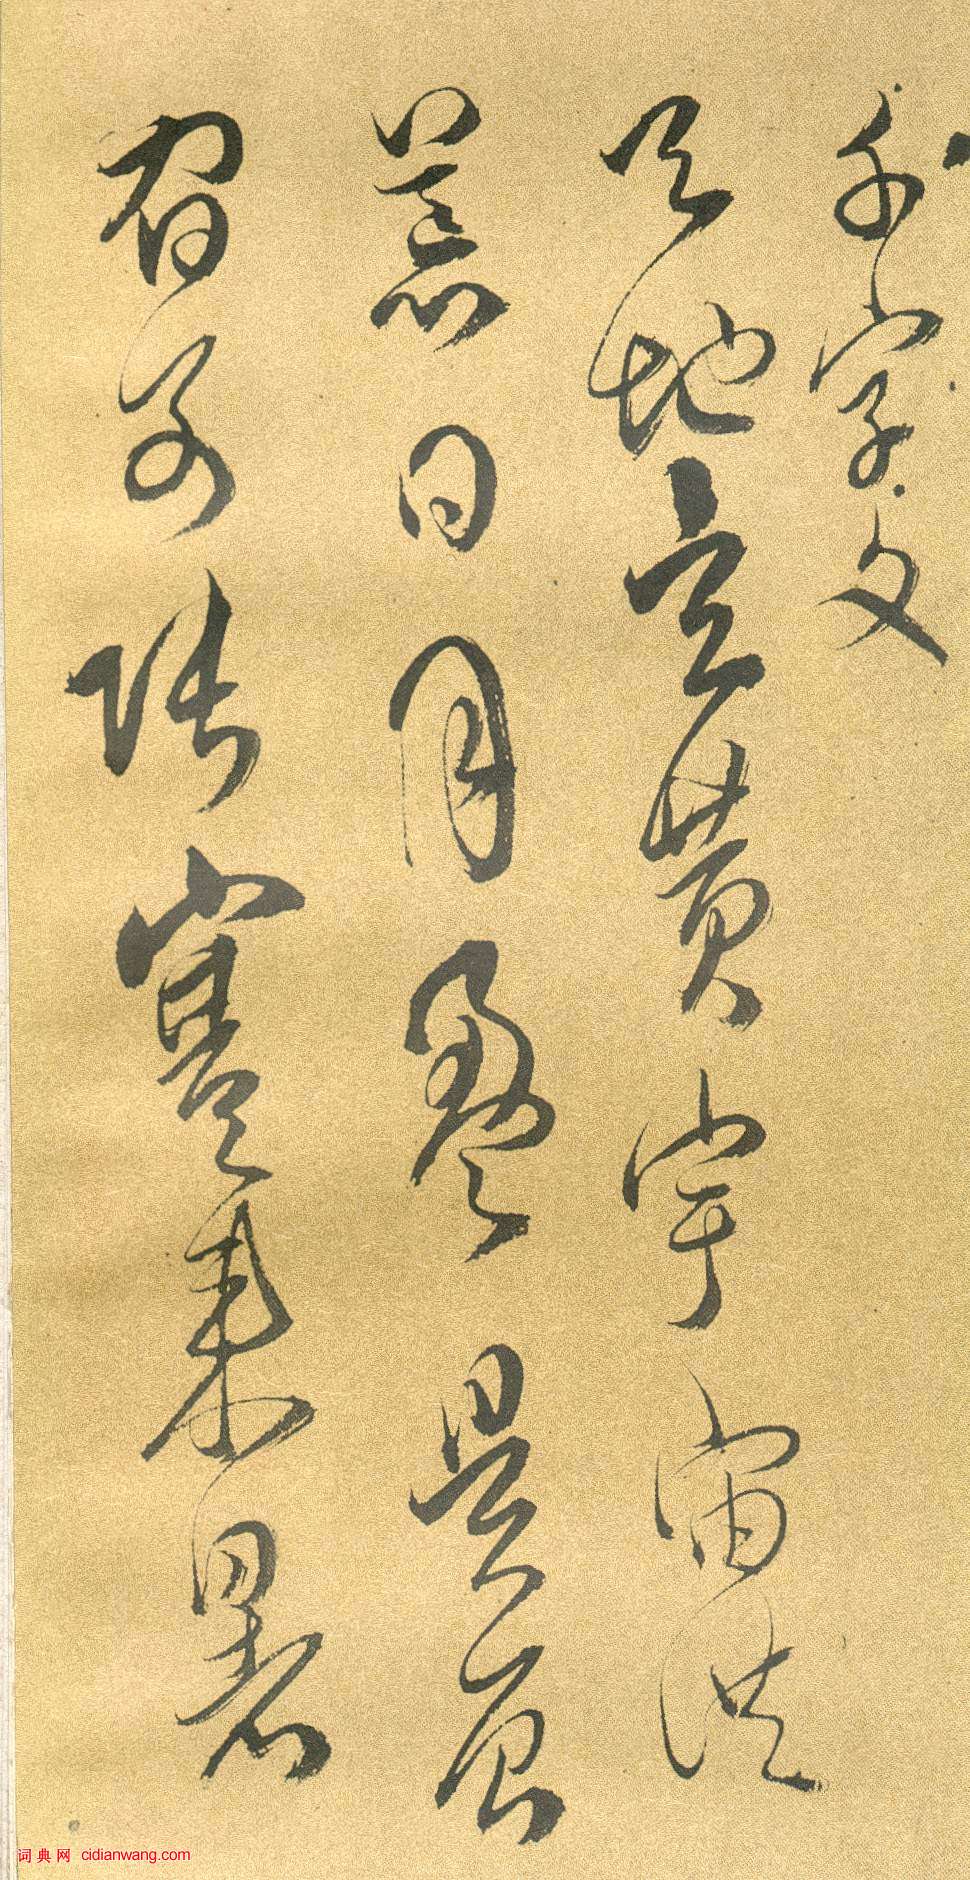 千字文
天地玄黄宇宙洪
荒日月盈昃辰
宿列張寒来暑
词典网 cidianwang.com